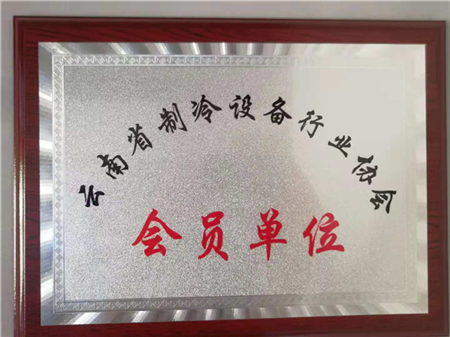 云南省制冷设备行业协会
会员单位